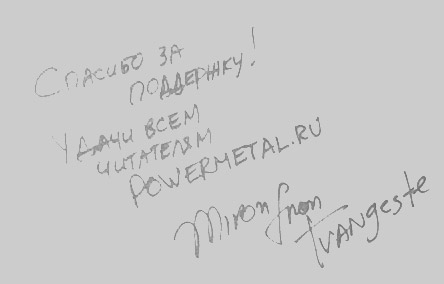 Спасибо за
поддержку!
Удачи всем
читателям
POWERMETAL.RU
Miron from
Tvangeste